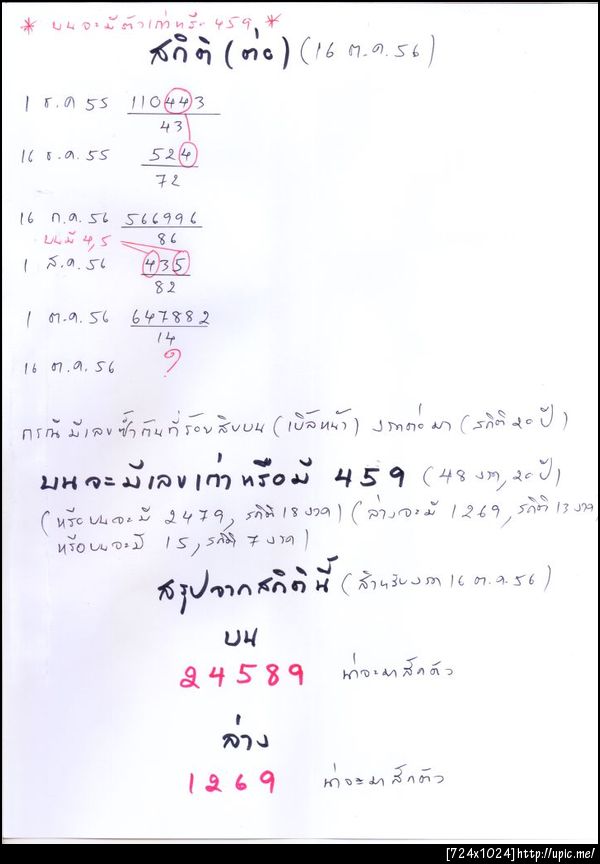 * บนจะมีตัวเก่าหรือ 459 *
สถิติ (ต่อ) (16 ต.ค. 56)
1 ธ.ค 55 110443
43
16 ธ.ค.55 524
72
16 ก.ค. 56 566996
86
บนมี 4,5
1 ส.ค.56 435
82
1 ต.ค.56 647882
14
16 ต.ค.56 ?
กรณีมีเลขซ้ำกันที่ร้อยสิบบน (เบิ้ลหน้า) งวดต่อมา (สถิติ 20 ปี)
บนจะมีเลขเก่าหรือมี 459 (48 งวด, 20 ปี)
(หรือบนจะมี 2479, สถิติ 18 งวด) (ล่างจะมี 1269, สถิติ 13 งวด
หรือบนจะมี 15, สถิติ 7 งวด)
สรุปจากสถิตินี้ (สำหรับงวด 16 ต.ค.56)
บน
24589 น่าจะมาสักตัว
ล่าง
1269 น่าจะมาสักตัว
[724x1024]http://upic.me/